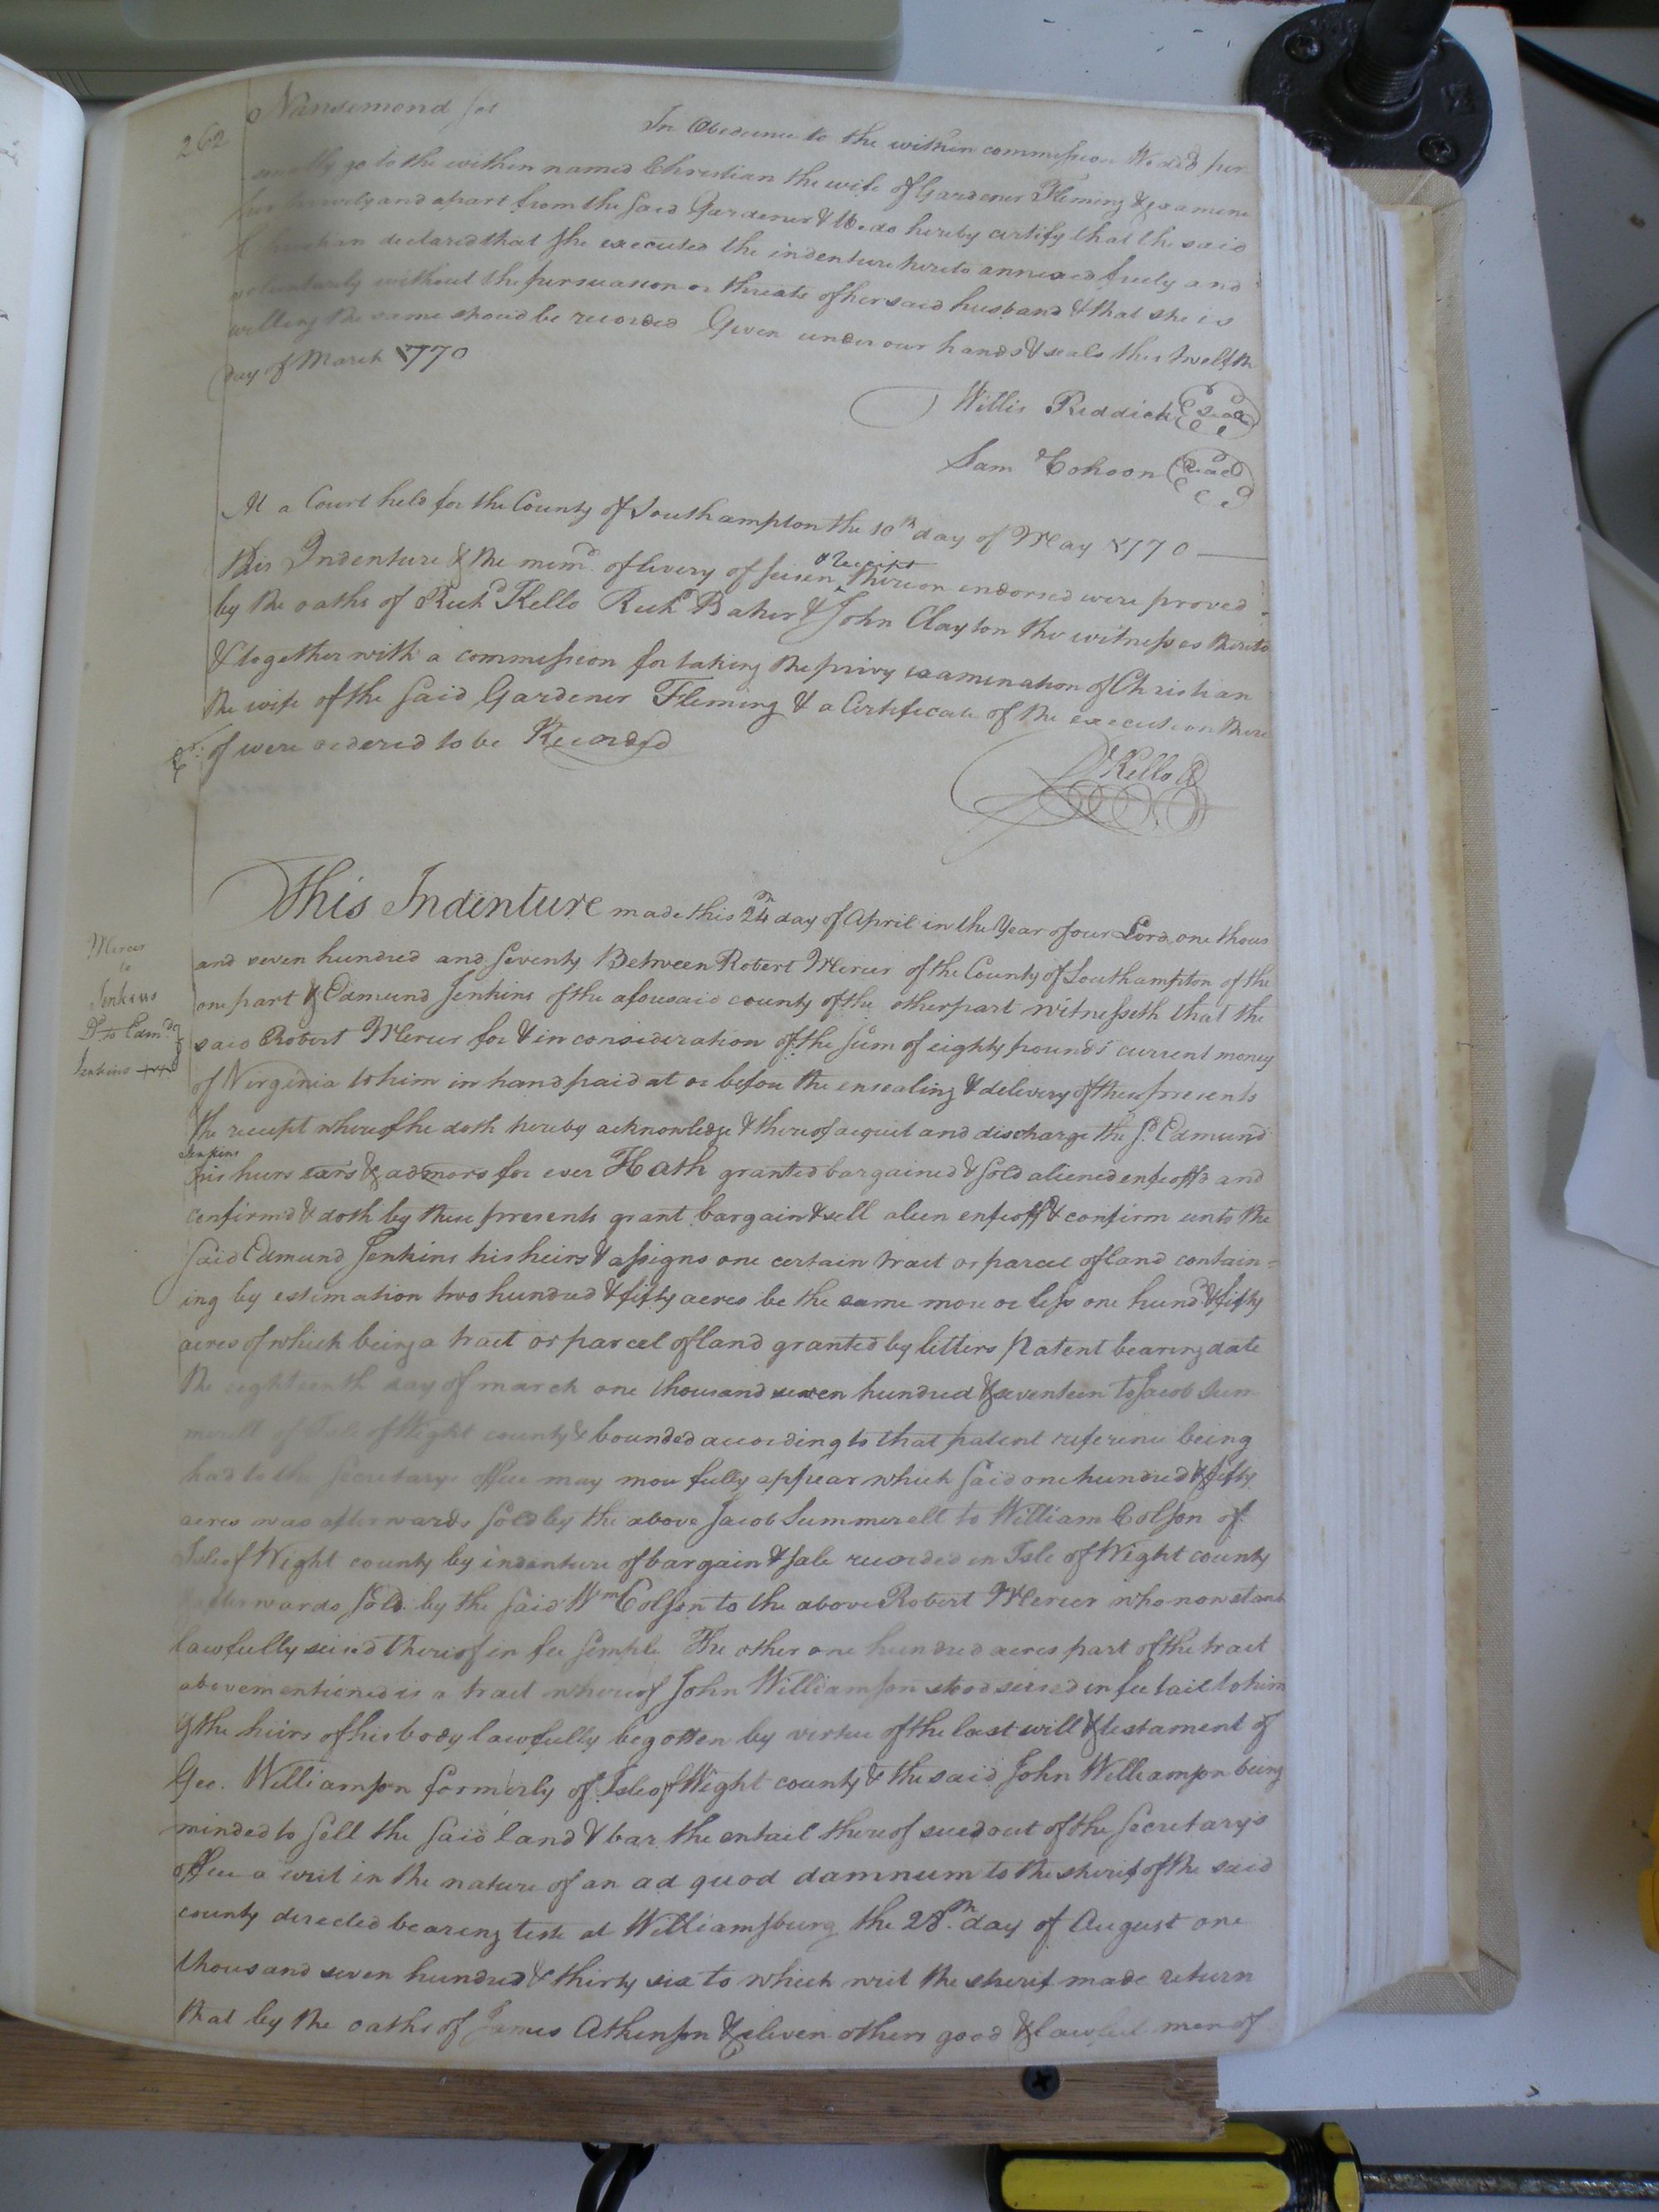 262
Nansemond sct
In Obedience to the within commission We did per
sonally go to the within named Christian the wife of Gardener Fleming & examine
her privily and apart from the said Gardener & We do hereby certify that the said
Christian declared that she executed the indenture hereto annexed freely and
voluntarily without the persuasion or threats of her said husband & that she is
willing the same should be recorded Given under our hands & seals this twelfth
day of March 1770
Willis Riddick Seal
Sam Cohoon Seal
At a Court held for the County of Southampton the 10th day of May 1770
this Indenture & the memd. of livery of seisen & Receipt thereon endorsed were proved
by the oaths of Richd Kello Richd Baker & John Clayton the witnesses thereto
& together with a commission for taking the privy examination of Christian
the wife of the said Gardener Fleming & a Certificate of the execution there
of were ordered to be Recorded
Ex:
R Kello
This Indenture made this 24th day of April in the Year of our Lord one thous
and seven hundred and seventy Between Robert Mercer of the County of Southampton of the
Mercer
to
Jenkins
Dd to Edmd
Jenkins
one part & Edmund Jenkins of the aforesaid county of the other part witnesseth that the
said Robert Mercer for & in consideration of the sum of eighty pounds current money
of Virginia to him in hand paid at or before the ensealing & delivery of these presents
the receipt whereof he doth hereby acknowledge & thereof acquit and discharge the sd. Edmund
Jenkins
his heirs exrs & admors for ever Hath granted bargained & sold aliened enfeoffd and
confirmd & doth by these presents grant bargain & sell alien enfeoff & confirm unto the
said Edmund Jenkins his heirs & assigns one certain tract or parcel of land contain=
ing by estimation two hundred & fifty acres be the same more or less one hund.d & fifty
acres of which being a tract or parcel of land granted by letters patent bearing date
the eighteenth day of march one thousand seven hundred & seventeen to Jacob Sum
merell of Isle of Wight county & bounded according to that patent reference being
had to the secretarys office may more fully appear which said one hundred & fifty
acres was afterwards sold by the above Jacob Summerell to William Colson of
Isle of Wight county by indenture of bargain & sale recorded in Isle of Wight county
& afterwards sold by the said Wm Colson to the above Robert Mercer who now stands
lawfully seised thereof in fee simple The other one hundred acres part of the tract
abovementioned is a tract whereof John Williamson stood seised in fee tail to him
& the heirs of his body lawfully begotten by virtue of the last will & testament of
Geo. Williamson formerly of Isle of Wight county & the said John Williamson being
minded to sell the said land & bar the entail thereof sued out of the secretarys
office a writ in the nature of an ad quod damnum to the sherif of the said
county directed bearing teste at Williamsburg the 28th day of August one
thousand seven hundred & thirty six to which writ the sherif made return
that by the oaths of James Atkinson & eleven others good & lawful men of